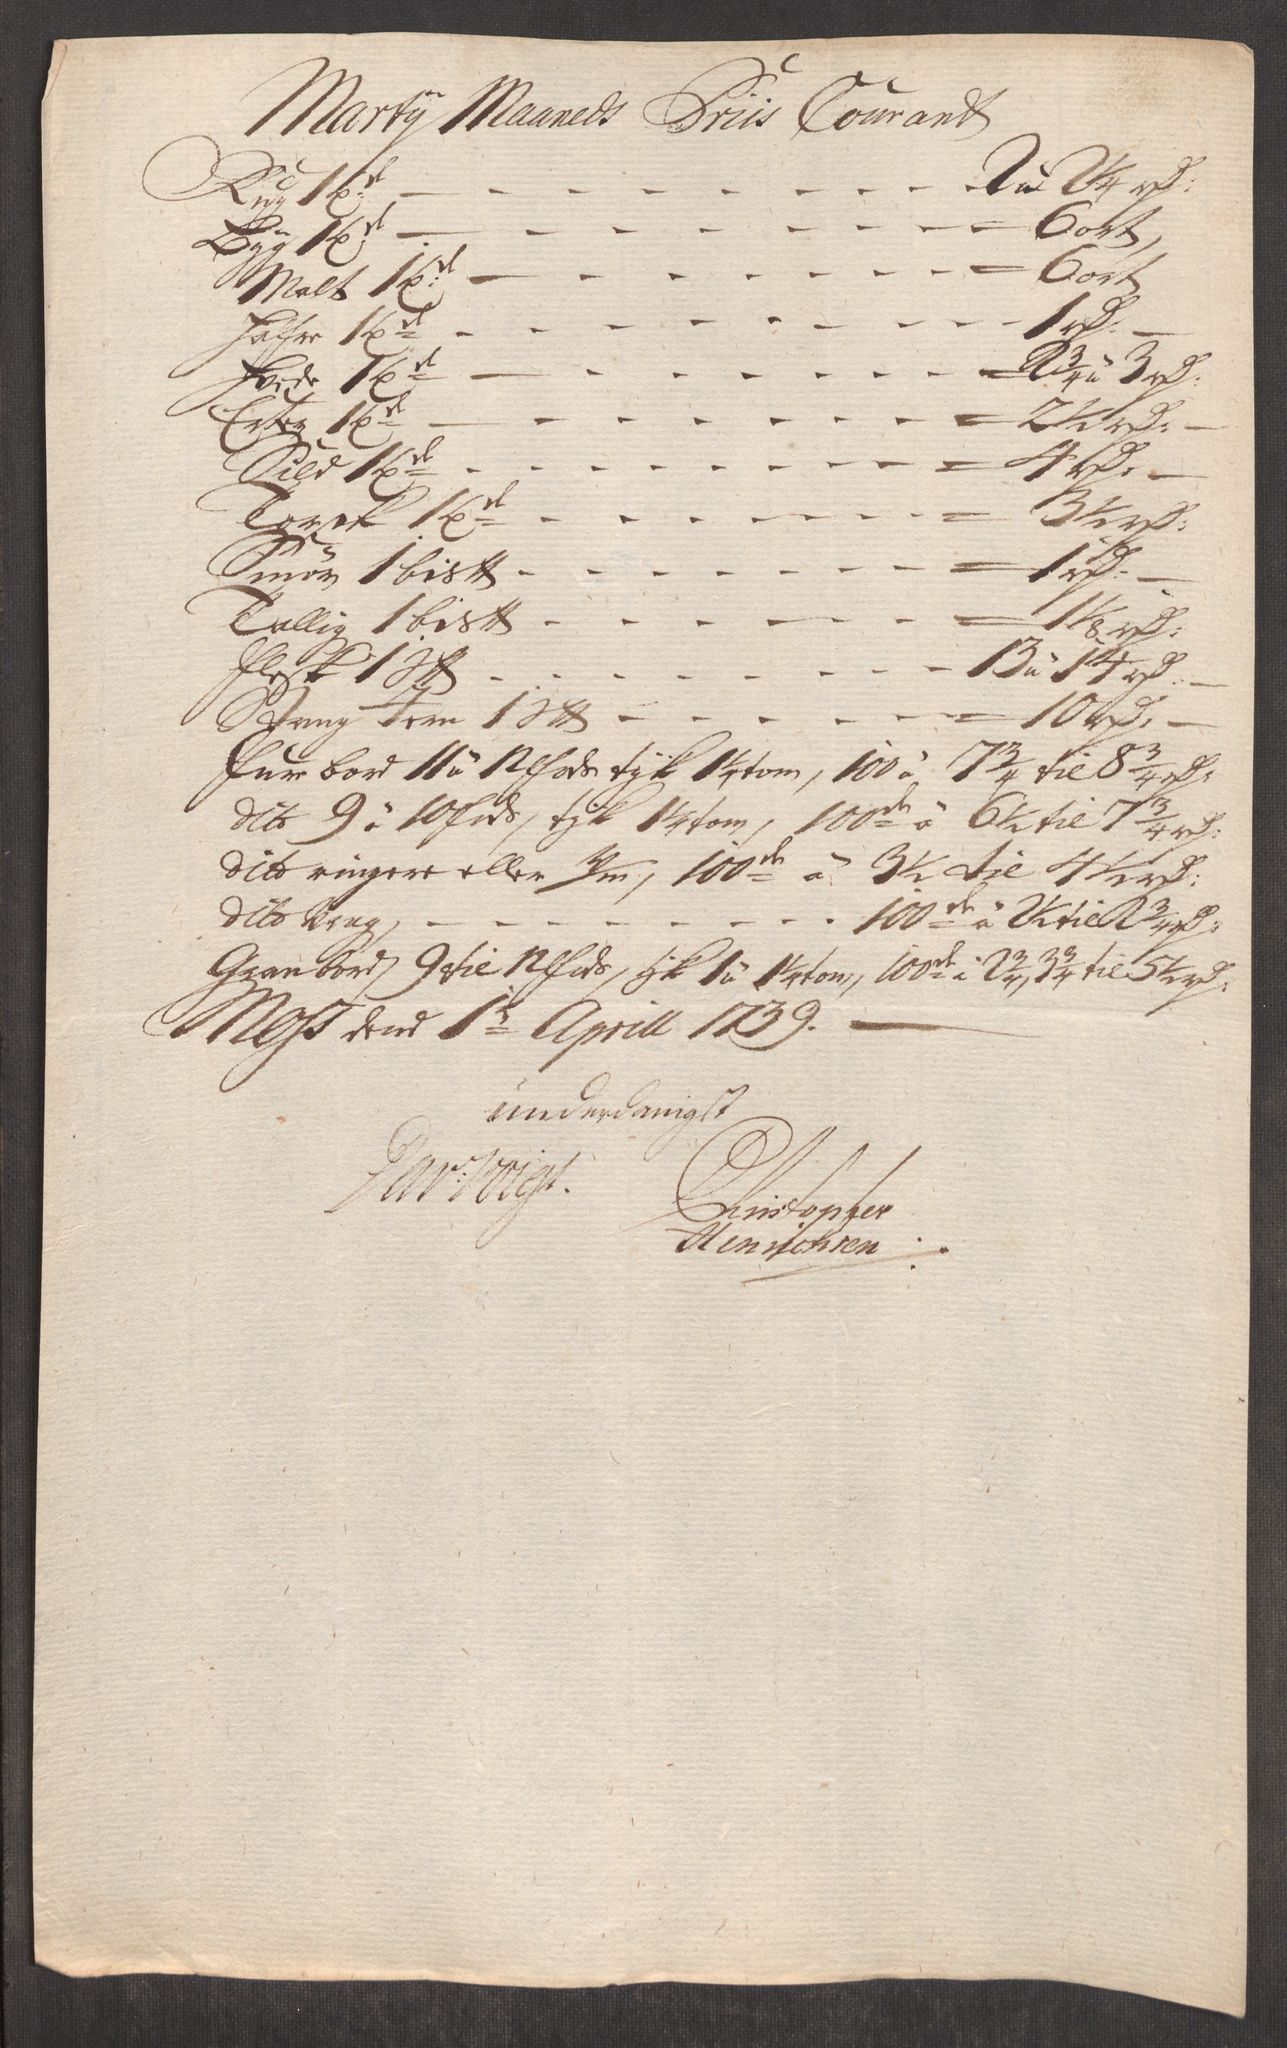 Martÿ Maaneds Priis Courant
Rug 1 td - 2 à 2¼ rd:
Byg 1 td - 6 ort,
Malt 1 td - 6 ort
Hafre 1 td - 1 rd: -
Hvede 1 td - 2¾ à 3 rd:
Erter 1 td - 2½ rd: -
Sild 1 td - 4 rd: -
Torsk 1 td - 3½ rd:
Smör 1 bis℔ - 1 rd: -
Tallig 1 bis℔ - 1⅛ rd:
Flesk 1 S℔ - 13 à 14 rd: -
Stang Jern 1 S℔ - 10 rd: -
Fure bord 11 à 12 fods tyk 1¼ tom, 100 à 7¾ til 8¾ rd:
dito 9 à 10 fods, tyk 1¼ tom, 100de à 6½ til 7¾ rd:
dito ringere eller 100de à 3½ til 4½ rd:
dito Vrag, - 100de à 2½ til 2¾ rd:
Gran bord, 9 til 12 fods, tyk 1 à 1¼ tom, 100de à 2¾, 3¾ til 5½ rd:
Moss dend 1te Aprill 1739. -
underdanigst
Christopher
Henrichsen